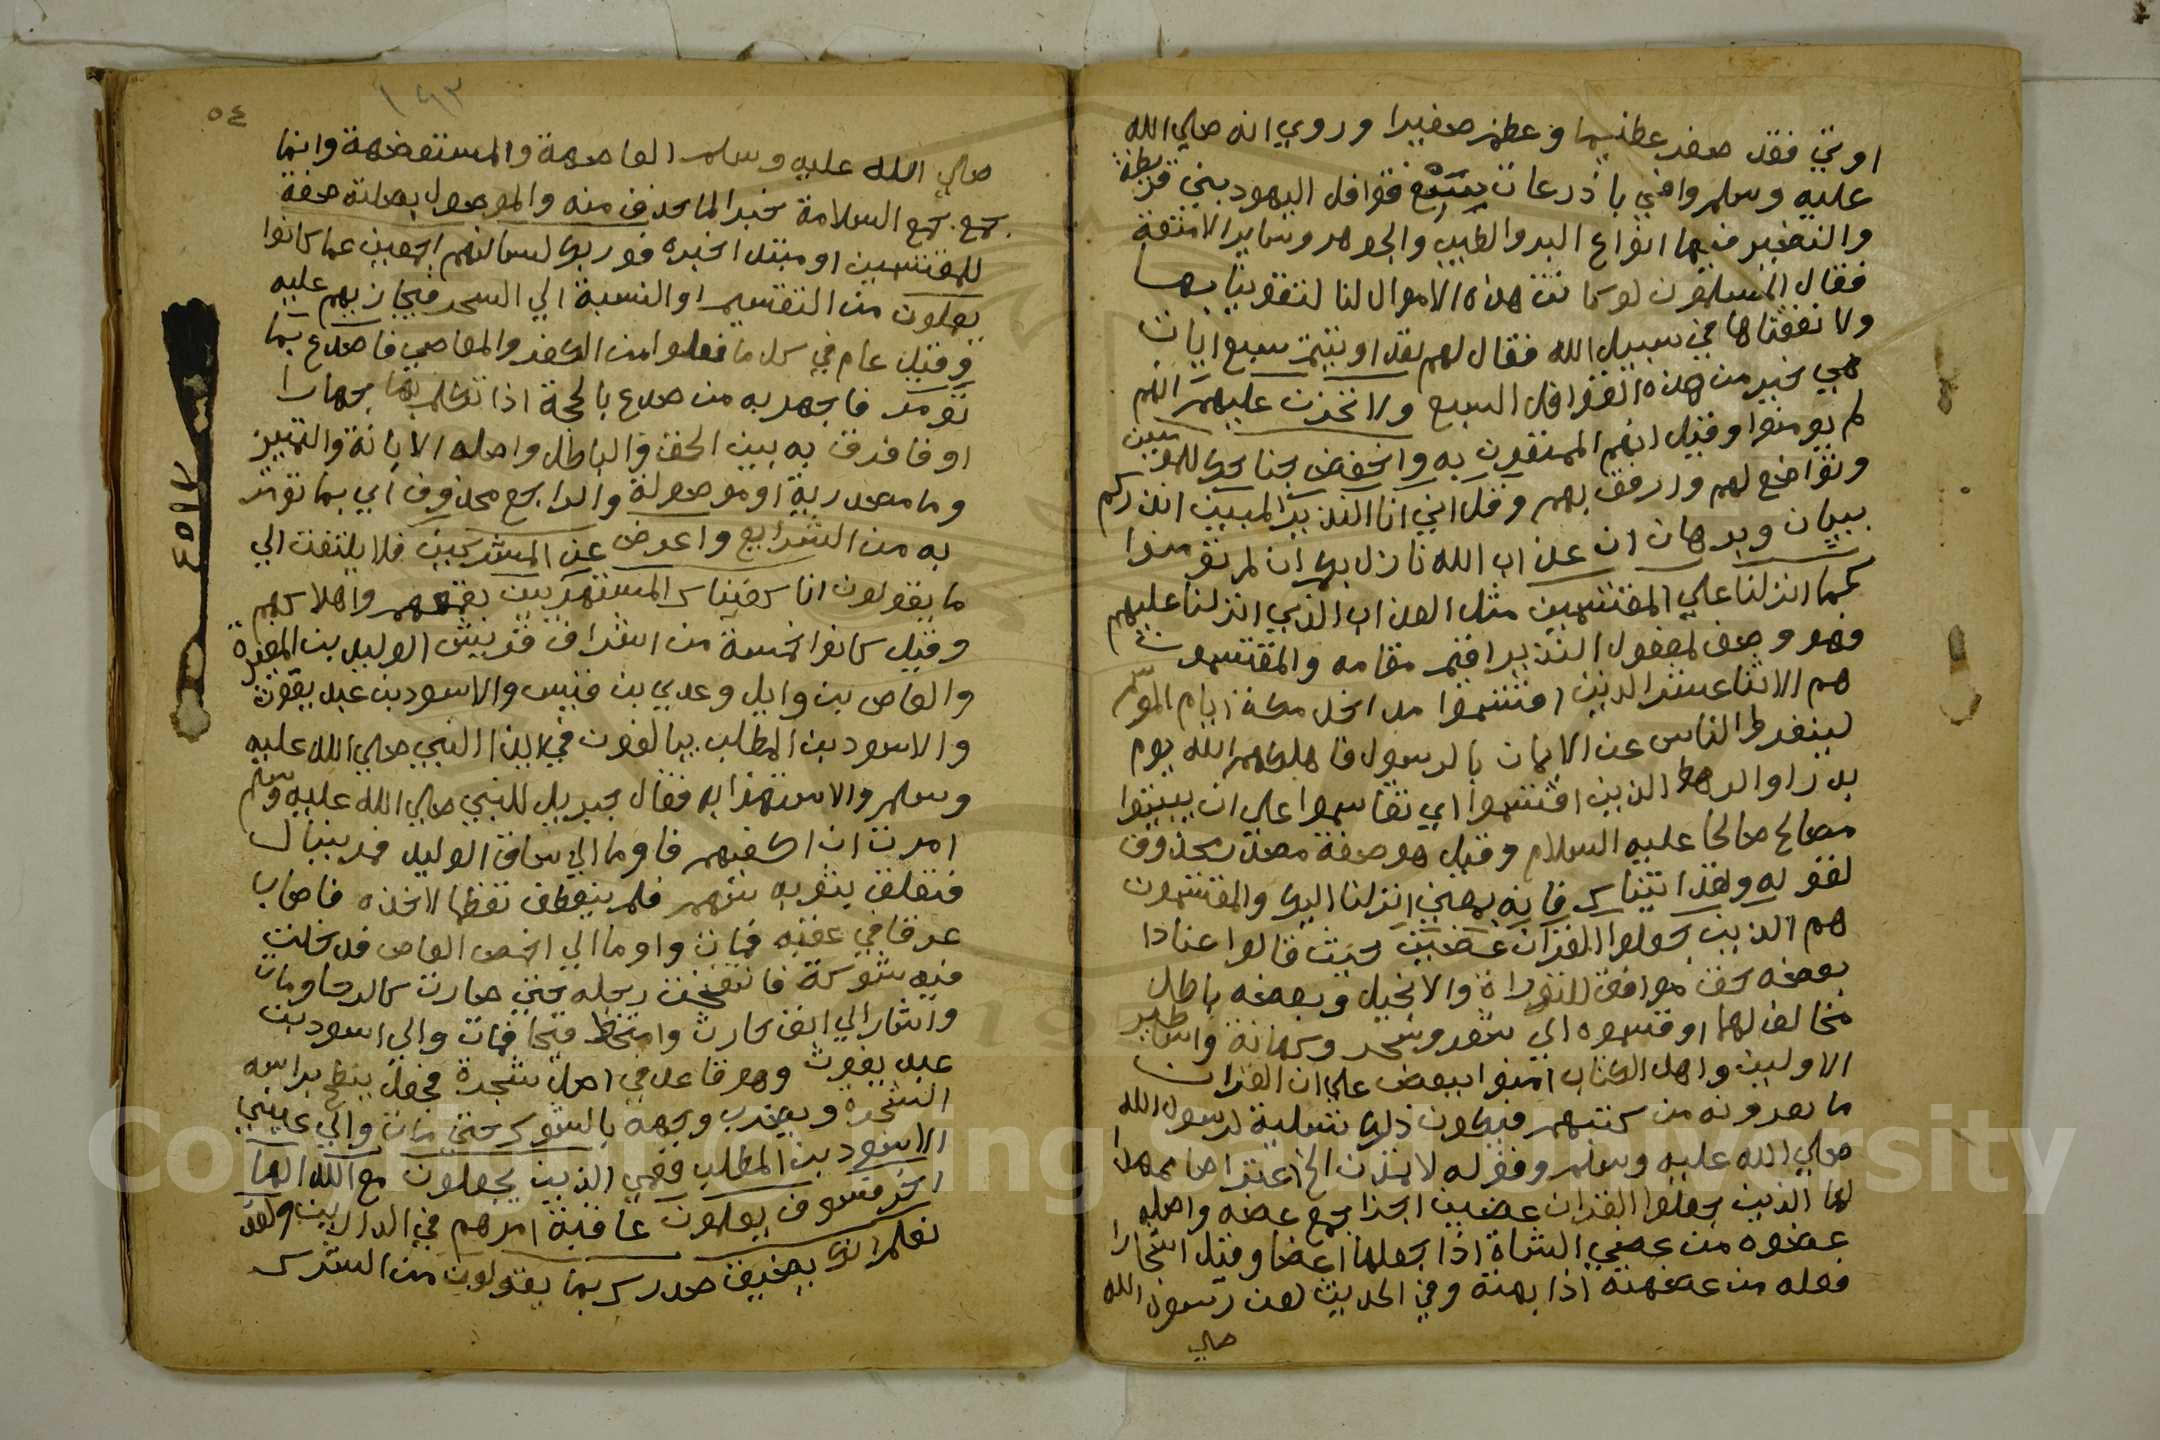 اوتي فقد صغر عظيما وعظم صغيرا وروي انه صلي الله
عليه وسلم وافي باذرعات سبع قوافل اليهود بني قريظة
والنضير فيها انواع البر والطيب والجوهر وساير الامتعة
فقال المسلمون لو كانت هذه الاموال لنا لتقوينا بها
ولا نفقناها في سبيل الله فقال لهم لقد اوتيتم سبع ايات
هي خير من هذه القوافل السبع ولا تحزن عليهم انهم
لم يومنوا وقيل انهم الممتعون به واخفض جناحك للمومنين
وتواضع لهم وارفق بهم وقل اني انا النذير المبين انذركم
ببيان وبرهان ان عذاب الله نازل بكم ان لم تومنوا
كما انزلنا علي المقتسمين مثل العذاب الذي انزلنا عليهم
فهو وصف لمفعول النذير اقيم مقامه والمقتسمون
هم الاثنا عشر الذين اقتسموا مداخل مكة ايام الموسم
لينفروا الناس عن الايمان بالرسول فاهلكهم الله يوم
بدر او الرهط الذين اقتسموا اي تقاسموا علي ان يبيتوا
صالحا عليه السلام وقيل هو صفة مصدر محذوف
لقوله ولقد اتيناك فانه بمعني انزلنا اليك والمقتسمون
هم الذين جعلوا القران عضين حيث قالوا عنادا
بعضه حق موافق للتوراة والانجيل وبعضه باطل
مخالف لهما او قسموه الي شعر وسحر وكهانة واساطير
الاولين واهل الكتاب امنوا ببعض علي ان القران
ما يقرونه من كتبهم فيكون ذلك تسلية لرسول الله
صلي الله عليه وسلم وقوله لا تمدن الخ اعتراضا ممدا
لها الذين جعلوا القران عضين اجزا جمع عضه واصله
عضوه من عضي الشاة اذا جعلها اعضا وقيل اسحارا
فعله من عضهته اذا بهته وفي الحديث لعن رسول الله
صلي
١٤٣
٥٤
صلي الله عليه وسلم العاضهة والمستعضهة وانما
جمع جمع السلامة جبرا لما حذف منه والموصول بصلته صفة
للمقتسمين او مبتدا خبره فوربك لنسالنهم اجمعين عما كانوا
يعملون من التقسيم او النسبة الي السحر فيجازيهم عليه
وقيل عام في كل ما فعلوا من الكفر والمعاصي فاصدع بما
تومر فاجهر به من صدع بالحجة اذا تكلم بها جهارا
او فافرق به بين الحق والباطل واصله الابانة والتمييز
وما مصدرية او موصولة والراجع محذوف اي بما تومر
به من الشرايع واعرض عن المشركين فلا يلتفت الي
ما يقولون انا كفيناك المستهزيين بقمعهم واهلاكهم
وقيل كانوا خمسة من اشراف قريش الوليد بن المغيرة
والعاص بن وايل وعدي بن قيس والاسود بن عبد يغوث
والاسود بن المطلب يبالغون في ايذا النبي صلي الله عليه
وسلم والاستهزا به فقال جبريل للنبي صلي الله عليه وسلم
امرت ان اكفيهم فاوما الي ساق الوليد فمر بنبال
فتعلق بثوبه سهم فلم ينعطف تعظما لاخذه فاصاب
عرقا في عقبه فمات واوما الي اخمص العاص فدخلت
فيه شوكة فانتفخت رجله حتي صارت كالرحا ومات
واشار الي انف حارث وامتخط قيحا فمات والي اسود بن
عبد يغوث وهو قاعد في اصل شجرة فجعل ينطح براسه
الشجرة ويضرب وجهه بالشوك حتي مات والي عيني
الاسود بن المطلب فعمي الذين يجعلون مع الله الها
اخر فسوف يعلمون عاقبة امرهم في الدارين ولقد
نعلم انك يضيق صدرك بما يقولون من الشرك
٤٥١٧
Copyright © King Saud University